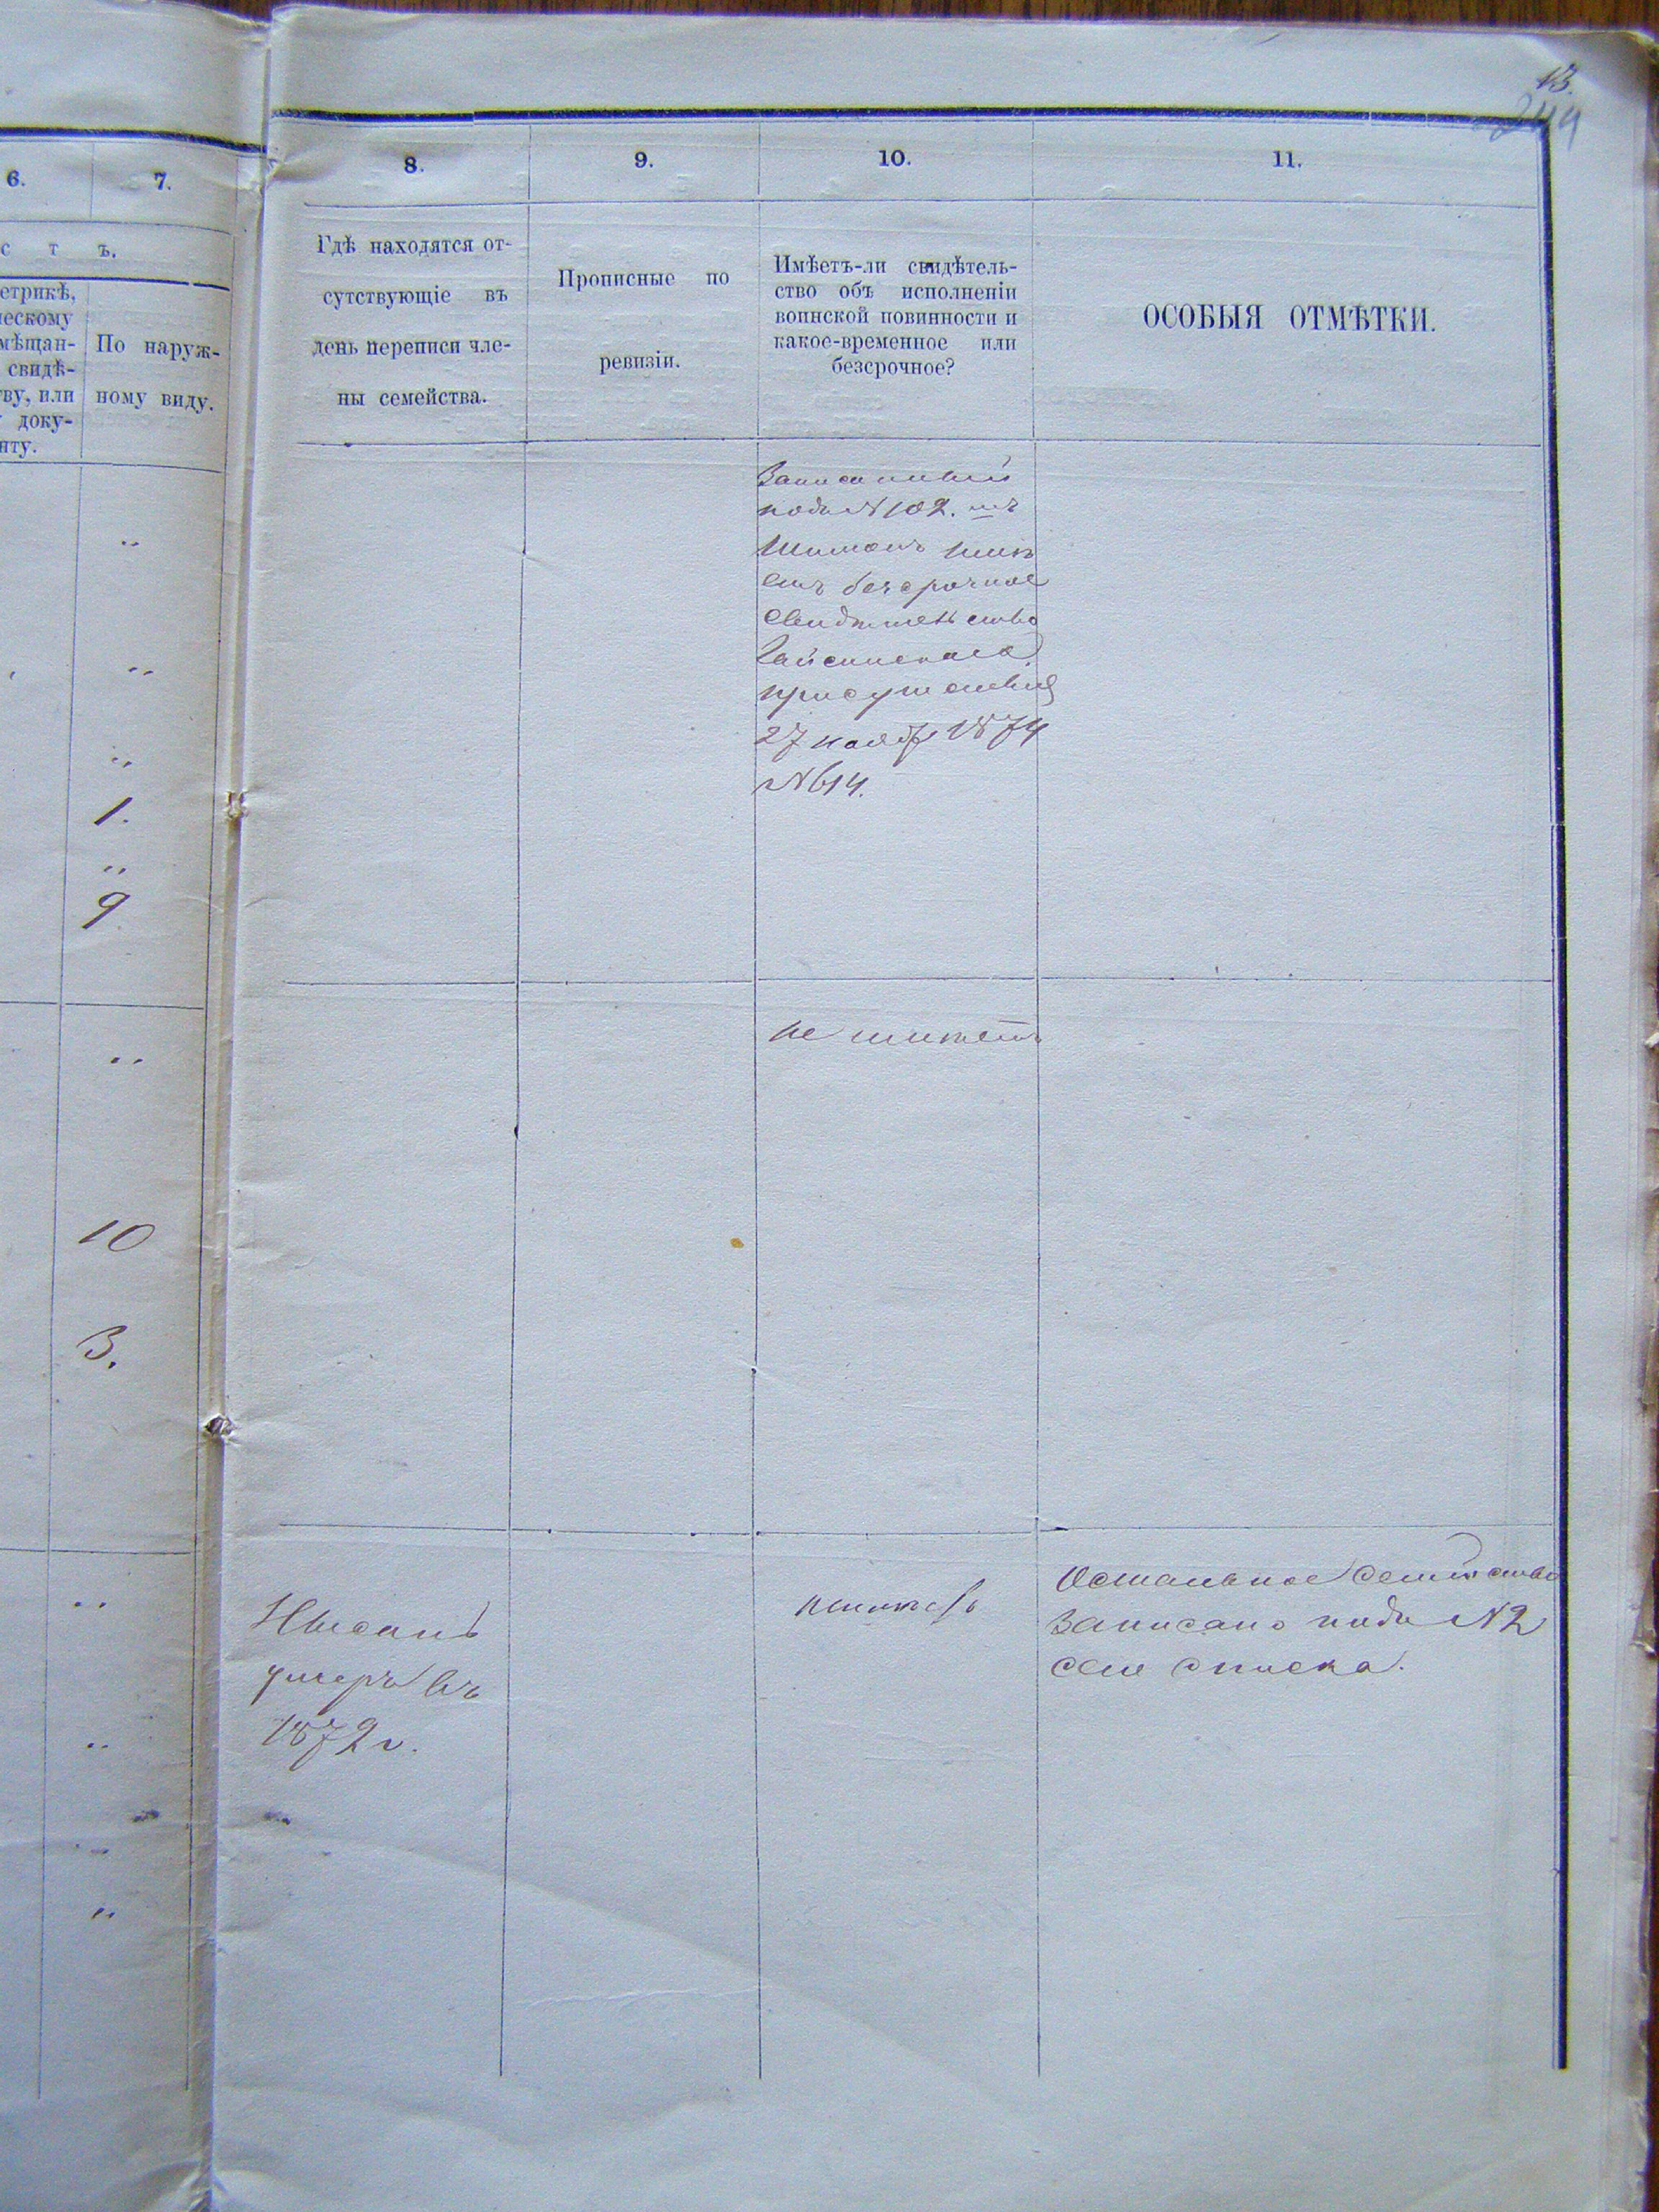 13.
244
6.
7.
с т ъ.
етрикѣ,
ческому
мѣщан-
свидѣ-
ву, или
доку-
нту.
По наруж-
ному виду.
1.
9
10
3.
8.
9.
10.
11.
Гдѣ находятся от-
сутствующіе въ
день переписи чле-
ны семейства.
Прописные по
ревизіи.
Имѣетъ-ли свидѣтель-
ство объ исполненіи
воинской повинности и
какое-временное или
безсрочное?
ОСОБЫЯ ОТМѢТКИ.
Записанный
подъ №102.
имѣ
етъ безсрочное
свидѣтельство
Гайсинскаго
присутствія
27 нояб 1874
№614.
не имѣетъ
Нысанъ
умеръ въ
1872 г.
неимѣетъ
Остальное семейство
записано подъ №2
сего списка.